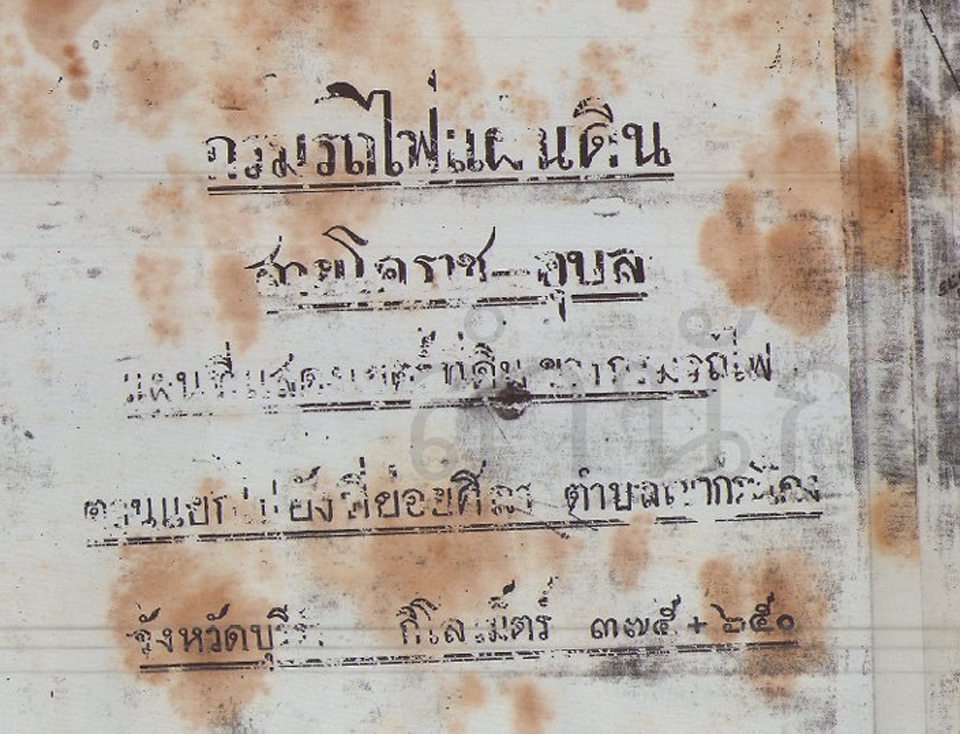 กรมรถไฟแผ่นดิน
สายโคราช–อุบล
แผนที่แสดงเขตร์ที่ดิน ของกรมรถไฟ
ตอนแยกไปยังที่ย่อยศิลา ตำบลเขากระโดง
จังหวัดบุรีรัมย์ กิโลเม็ตร์ ๓๗๕ + ๖๕๐